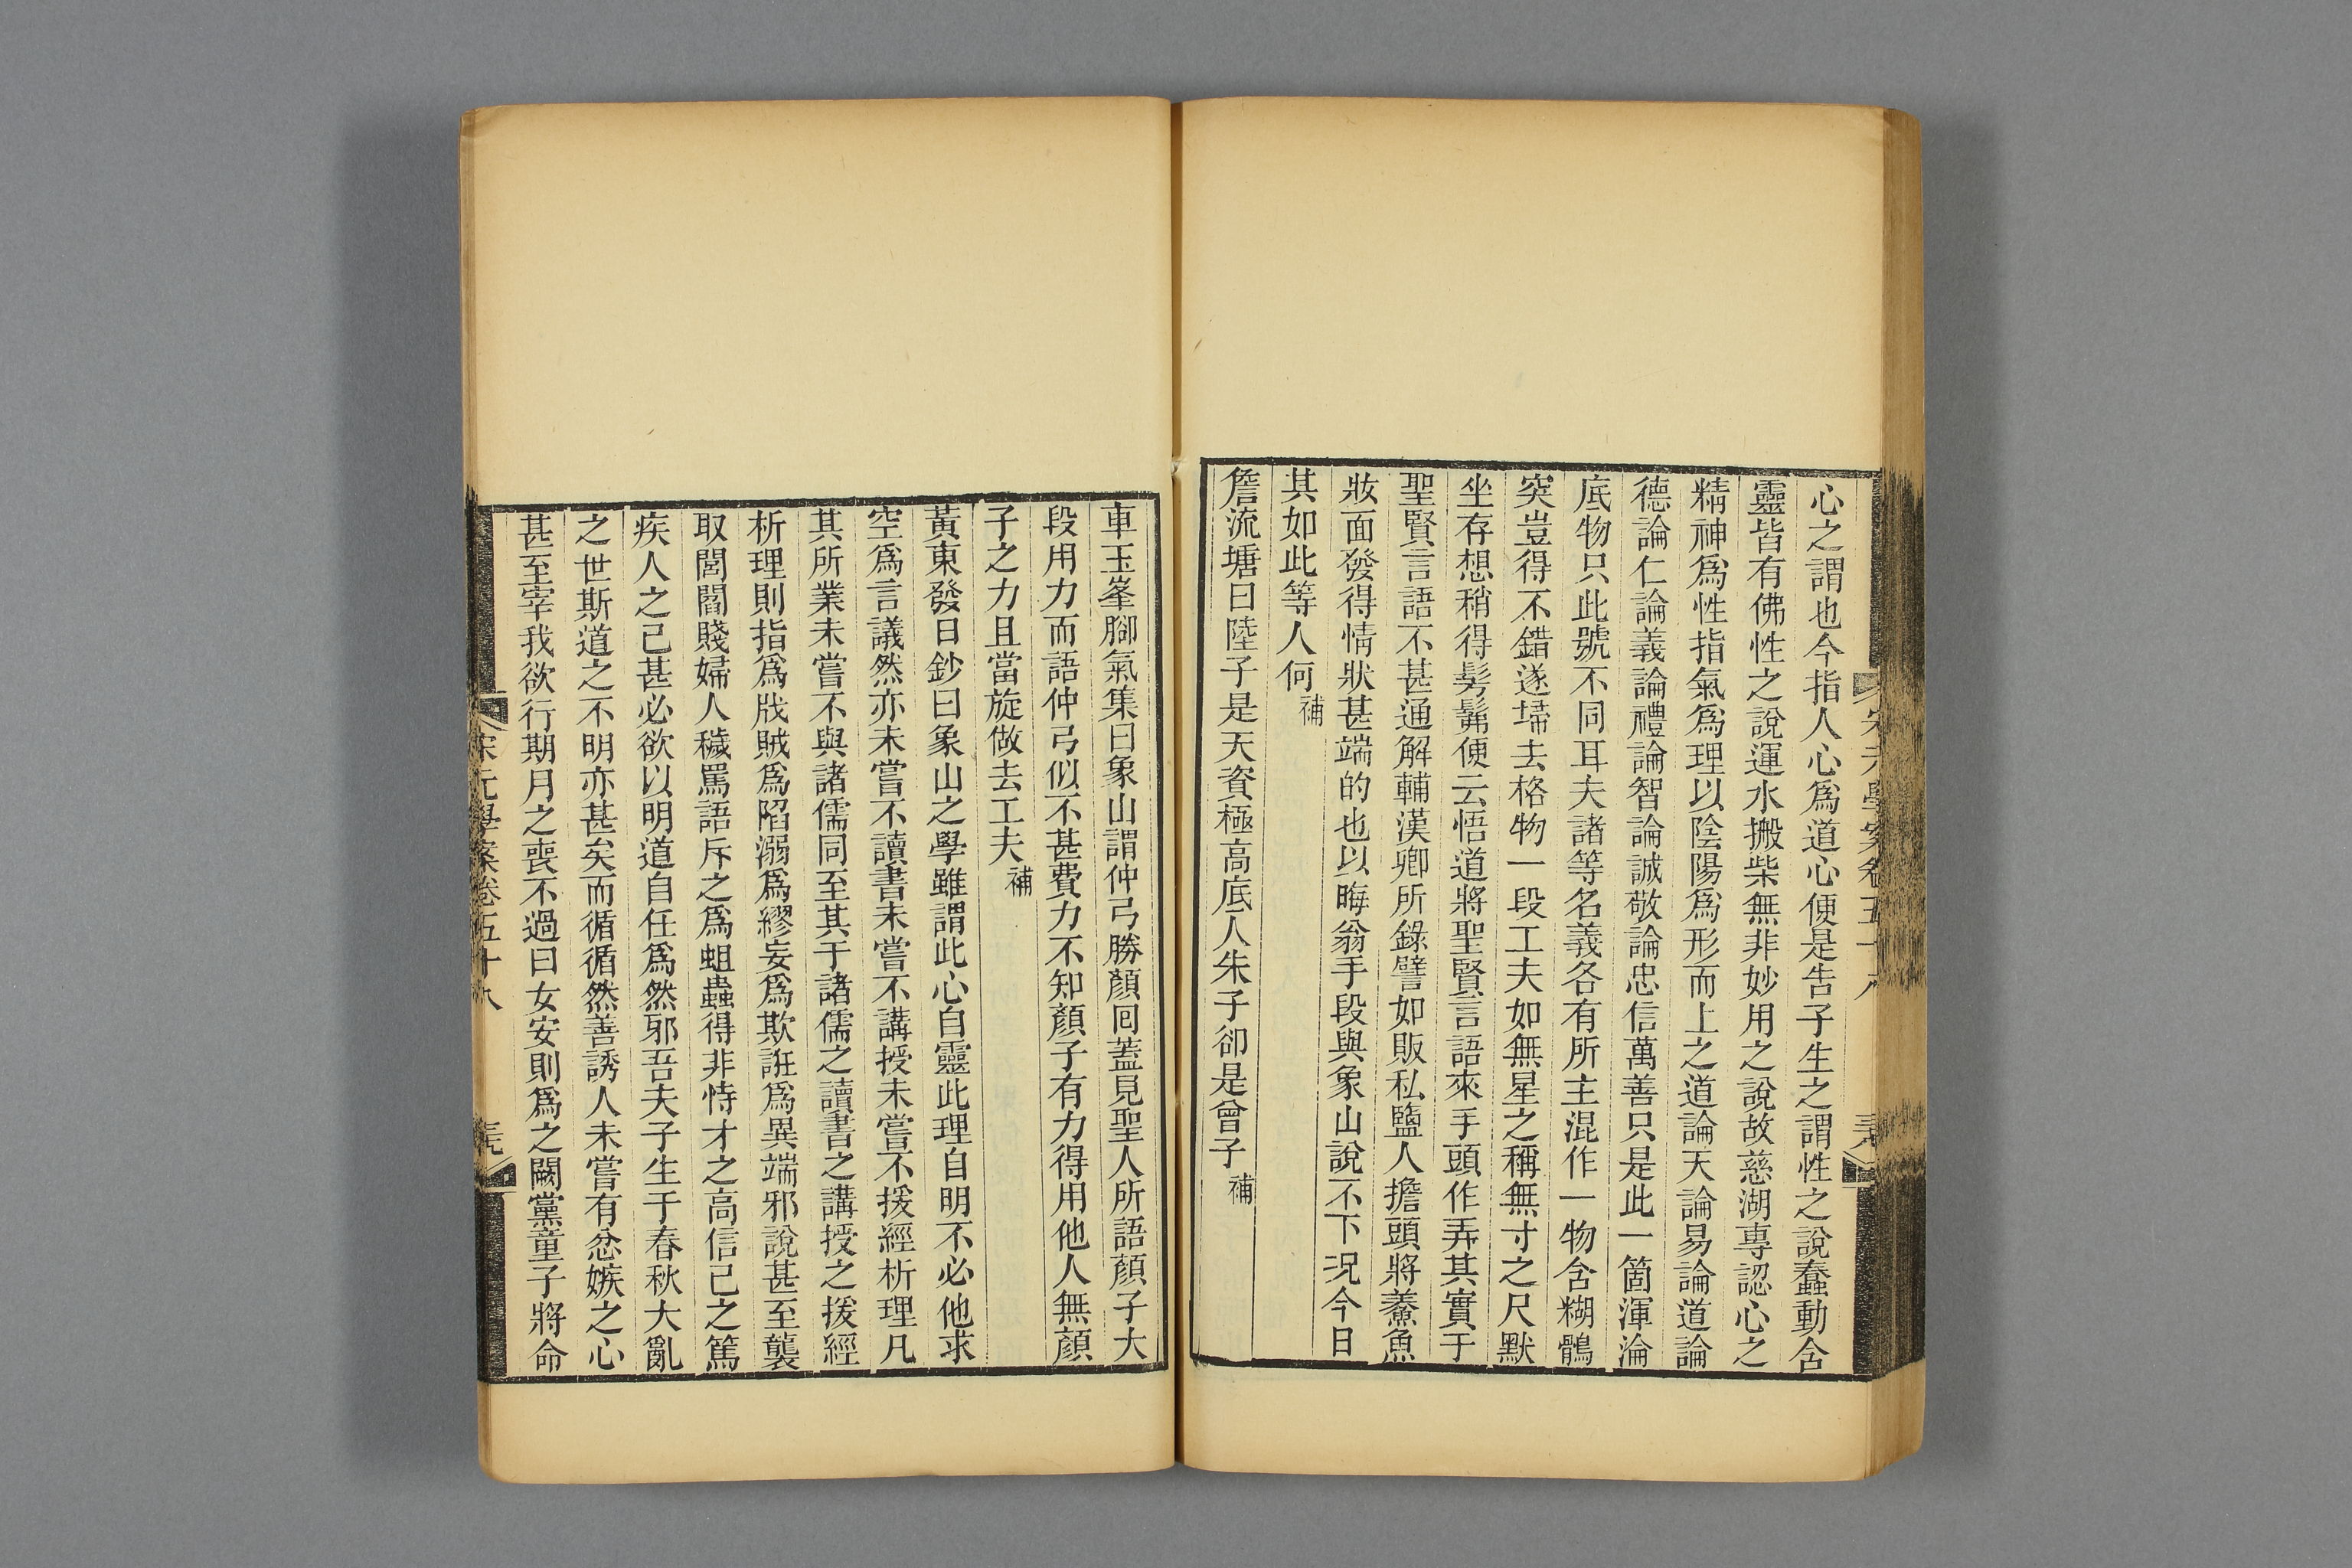 心之謂也今指人心爲道心便是告子生之謂性之說蠢動含
靈皆有佛性之說運水搬柴無非妙用之說故慈湖專認心之
精神爲性指氣爲理以陰陽爲形而上之道論天論易論道論
德論仁論義論禮論智論誠敬論忠信萬善只是此一箇渾淪
底物只此號不同耳夫諸等名義各有所主混作一物含糊鶻
突豈得不錯遂埽去格物一段工夫如無星之稱無寸之尺默
坐存想稍得髣髴便云悟道將聖賢言語來手頭作弄其實于
聖賢言語不甚通解輔漢卿所錄譬如販私鹽人擔頭將鯗魚
妝面發得情狀甚端的也以晦翁手段與象山說不下況今日
其如此等人何補
詹流塘曰陸子是天資極高底人朱子卻是曾子補
車玉峯腳氣集曰象山謂仲弓勝顏回蓋見聖人所語顏子大
段用力而語仲弓似不甚費力不知顏子有力得用他人無顏
子之力且當旋做去工夫補
黃東發日鈔曰象山之學雖謂此心自靈此理自明不必他求
空爲言議然亦未嘗不讀書未嘗不講授未嘗不援經析理凡
其所業未嘗不與諸儒同至其于諸儒之讀書之講授之援經
析理則指爲戕賊爲陷溺爲繆妄爲欺誑爲異端邪說甚至襲
取閭閻賤婦人穢罵語斥之爲蛆蟲得非恃才之高信己之篤
疾人之已甚必欲以明道自任爲然邪吾夫子生于春秋大亂
之世斯道之不明亦甚矣而循循然善誘人未嘗有忿嫉之心
甚至宰我欲行期月之喪不過曰女安則爲之闕黨童子將命
宋元學案卷五十八